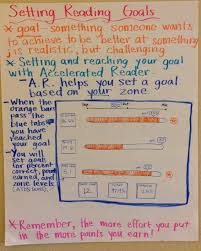 Setting Reading Goals
* goal - something someone wants
to achieve to be better at something
is realistic, but challenging
* Setting and reaching your goal
with Accelerated Reader -
- A.R. helps you set a goal
based on your zone
- When the
orange bars
pass the
blue tabs
you have
reached
your goal
- You will
set goals
for percent
correct, points
earned, and
zone levels
* Remember, the more effort you put
in the more points you earn!